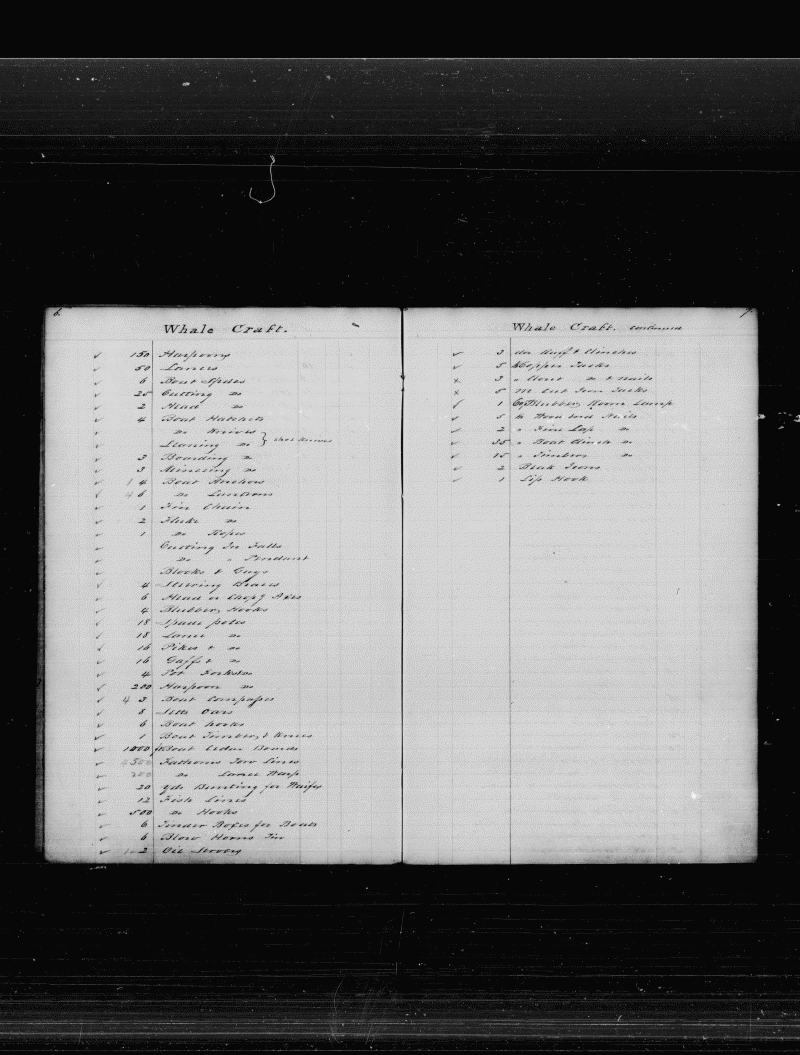 6
Whale Craft.
✓ 150 Harpoons
✓ 50 Lances
✓ 6 Boat Spades
✓ 25 Cutting do
✓ 2 Head do
✓ 4 Boat Hatchets
✓ do Knives
✓ Leaning do
✓ 3 Boarding do
✓ 3 Mincing do
✓ 4 Boat Anchors
✓ 6 do Lanterns
✓ 1 Fin Chain
✓ 2 Fluke do
✓ 1 do Ropes
✓ Cutting In Falls
✓ do " Pendant
✓ Blocks & Guys
✓ 4 Steering Braces
✓ 6 Head or Chopg Axes
✓ 4 Blubber Hooks
✓ 18 Spade poles
✓ 18 Lance do
✓ 16 Pikes & do
✓ 16 Gaffs & do
✓ 4 Pot
✓ 200 Harpoon do
✓ 3 Boat Compasses
✓ 8 Setts Oars
✓ 6 Boat hooks
✓ 1 Boat Timbers & Knees
✓ 1000 ft Boat Cedar Boards
✓ Fathoms Tow Lines
✓ do Lance Warp
✓ 20 yds Bunting for Waifs
✓ 12 Fish Lines
✓ 500 do Hooks
✓ 6 Tinder Boxes for Boats
✓ 6 Blow Horns Tin
✓ 2 Oil
7
Whale Craft. continued
✓ 3
✓ 5 Copper Tacks
x 3 " Clout do & nails
x 5 M Cut Iron Tacks
✓ 1 Blubber Room Lamp
✓ 5 Nails
✓ 2 " Fine Lap do
✓ 35 " Boat Clinch do
✓ 15 " Timber do
✓ 2 Beak Irons
✓ 1 Lip Hook